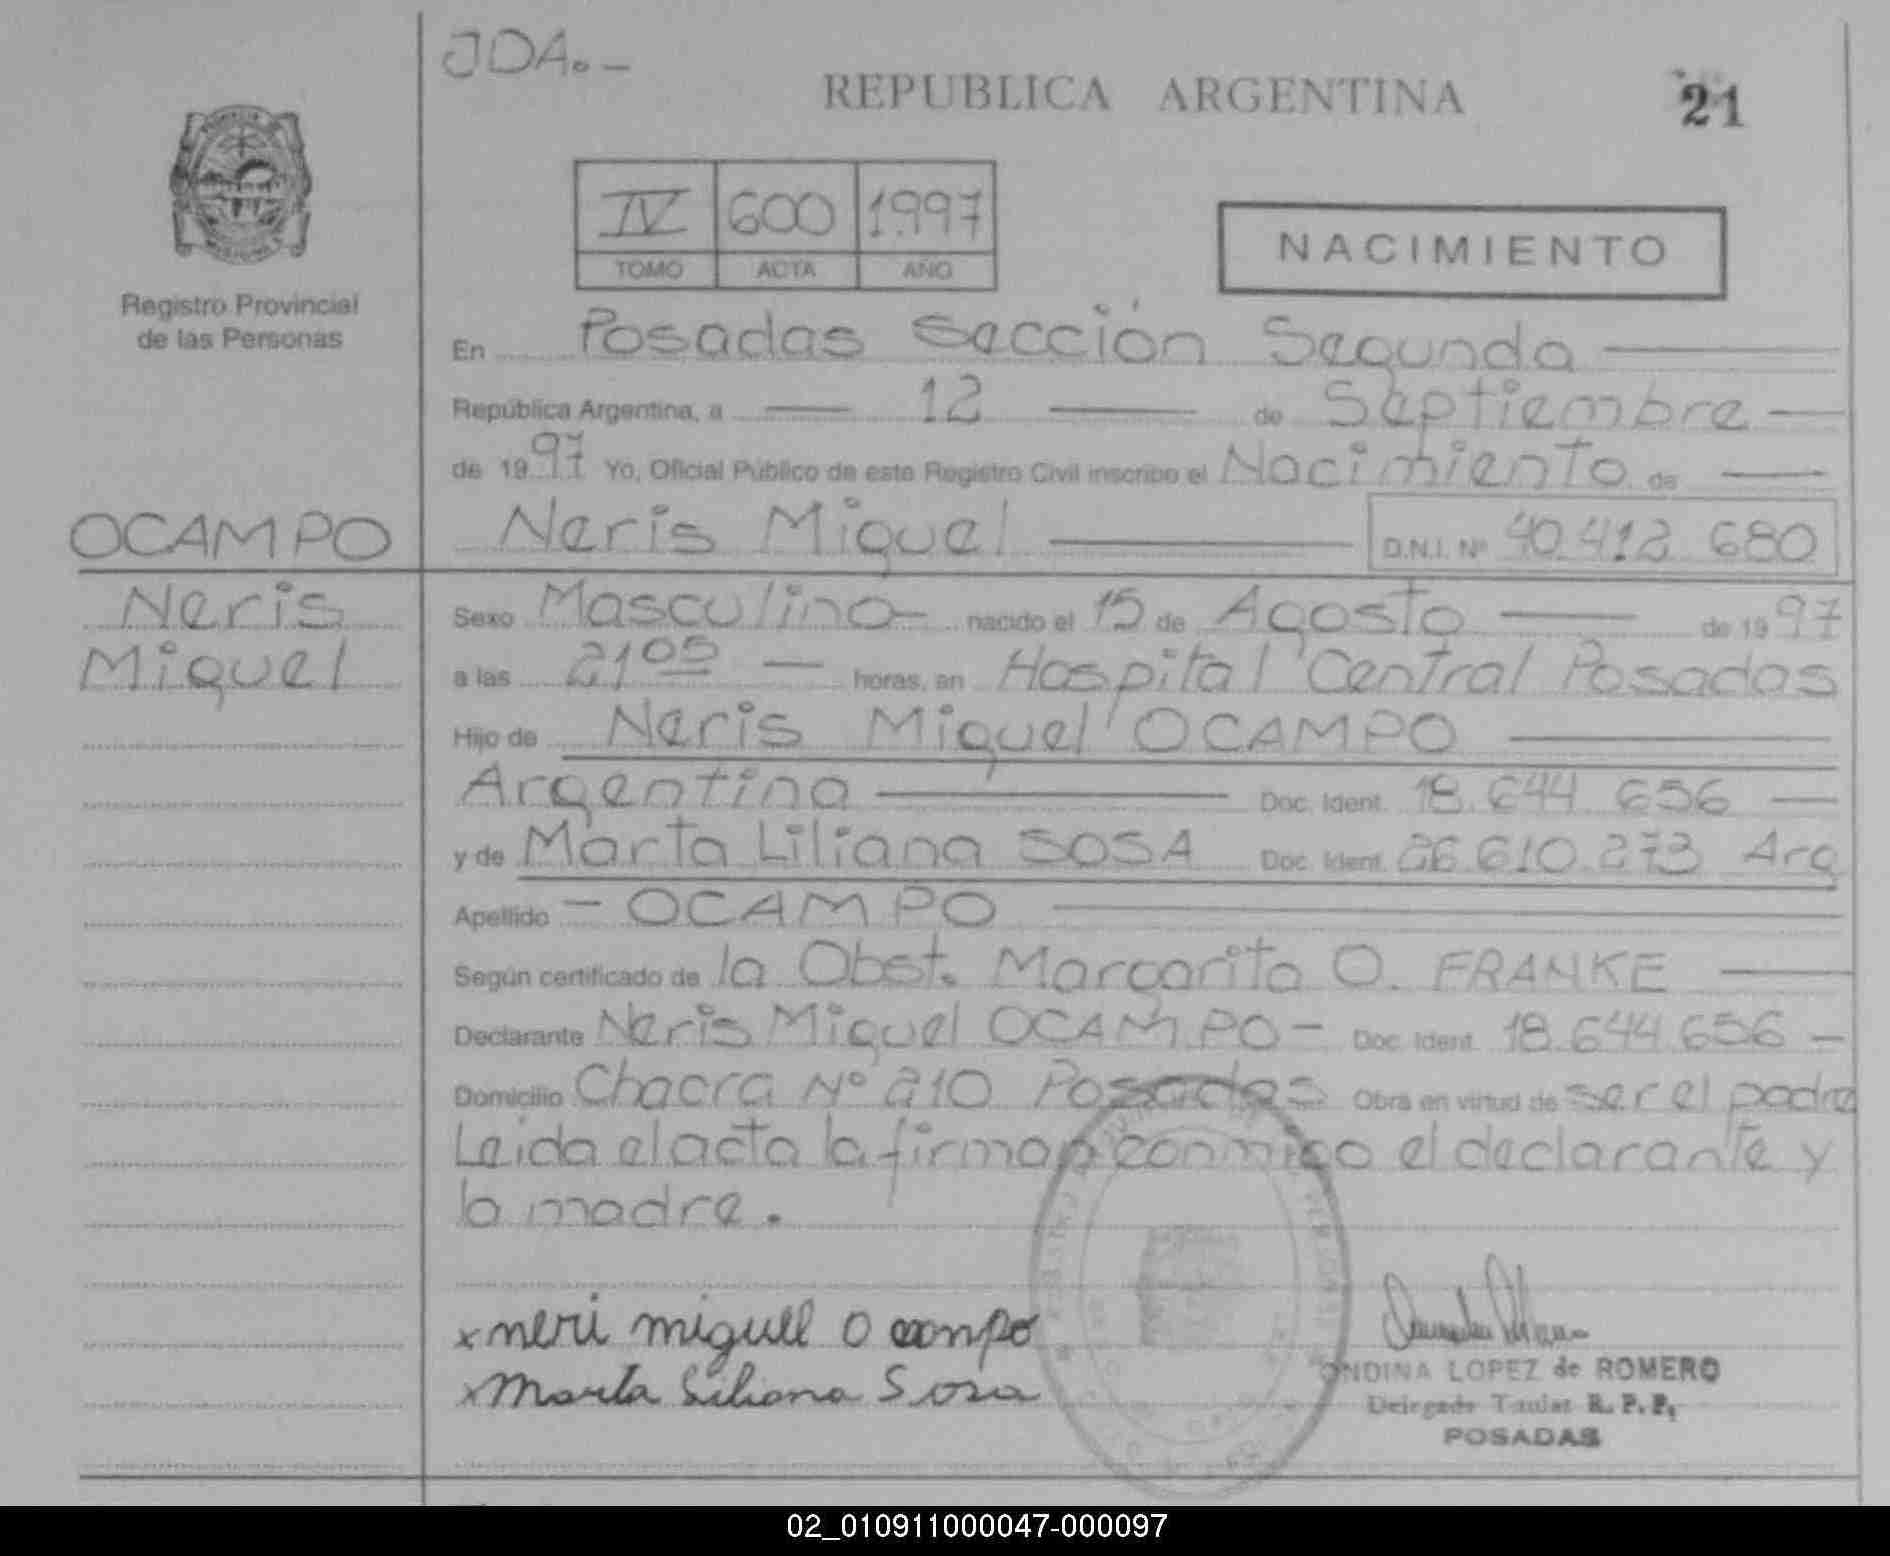 JDA. —
REPUBLICA ARGENTINA
21
Registro Provincial
de las Personas
IV 600 1997
TOMO ACTA AÑO
NACIMIENTO
En Posadas Sección Segunda
República Argentina, a — 12 — de Septiembre —
de 1997 Yo, Oficial Público de este Registro Civil inscribo el Nacimiento de —
OCAMPO
Neris Miguel — D.N.I. Nº 40.412 680
Neris
Miguel
Sexo Masculino — nacido el 15 de Agosto — de 1997
a las 21 05 — horas, en Hospital Central Posadas
Hijo de Neris Miguel OCAMPO —
Argentina — Doc. Ident. 18.644 656 —
y de Marta Liliana SOSA Doc. Ident. 26.610.273 Arg
Apellido — OCAMPO —
Según certificado de la Obst. Margarita O. FRANKE —
Declarante Neris Miguel OCAMPO — Doc. Ident. 18.644.656 —
Domicilio Chacra Nº 210 Posadas Obra en virtud de ser el padre
Leida el acta la firman conmigo el declarante y
la madre.
x neri miguel Ocampo
x Marta Liliana Sosa
ONDINA LOPEZ de ROMERO
Delegado Titular R. P. P.
POSADAS
02_010911000047-000097